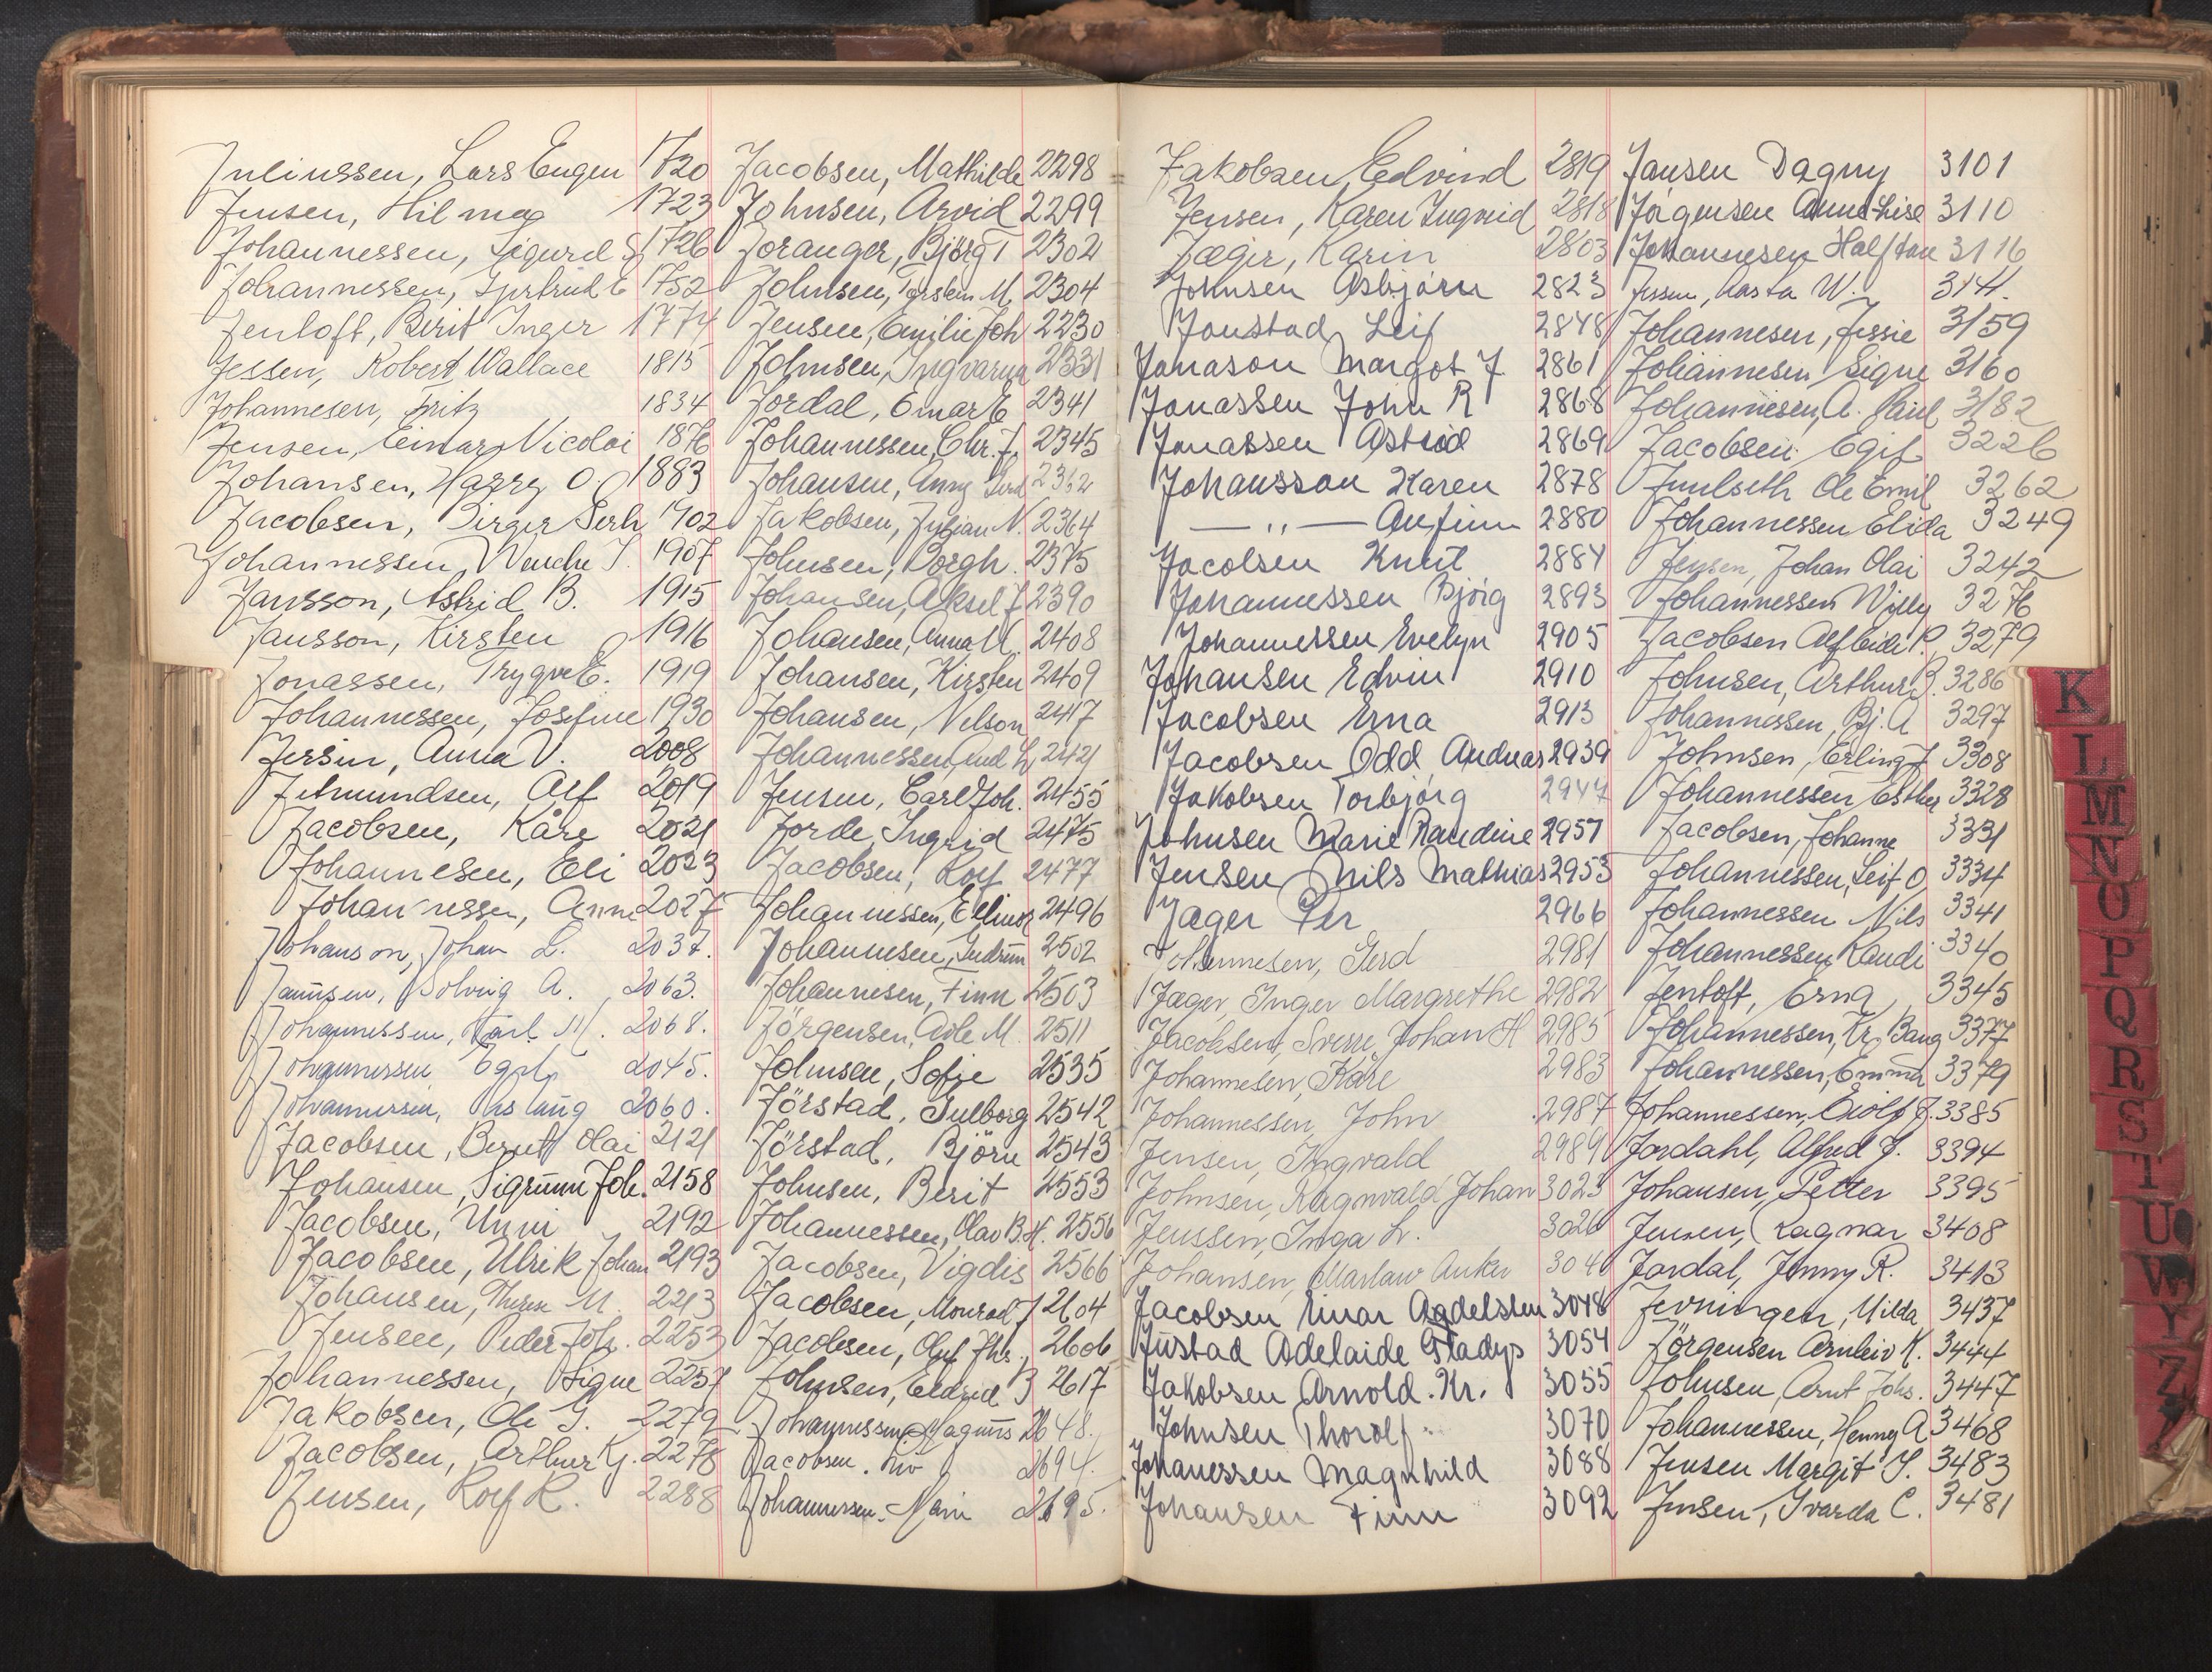 Juliussen, Lars Eugen 1720
Jensen, Hilma 1723
Johannessen, Sigurd S 1726
Johannessen, Gertrud E 1752
Jentoft, Berit Inger 1774
Jessen, Robert Wallace 1815
Johannesen, Fritz 1834
Jensen, Einar Nicolai 1876
Johansen, Harry O. 1883
Jacobsen, Birger Serh 1902
Johannessen, Wenche J. 1907
Jansson, Astrid B. 1915
Jansson, Kirsten 1916
Jonassen, Trygve E. 1919
Johannessen, Josefine 1930
Jersin, Anna V. 2008
Jetmundsen, Alf 2019
Jacobsen, Kåre 2021
Johannesen, Eli 2023
Johannessen, Anne 2027
Johanson, Johan L. 2037.
Jannsen, Solveig A. 2063.
Johannessen, Karl M. 2068.
Johannessen Egil 2045.
Johannessen, Aslaug 2060.
Jacobsen, Berntt Olai 2121
Johansen, Sigrunn Joh. 2158
Jacobsen, Unni 2192
Jacobsen, Ulrik Johan 2193
Johansen, Therese M. 2213
Jensen, Peder Joh. 2253
Johannessen, Signe 2257
Jakobsen, Ole G. 2272
Jacobsen, Arthur Kj. 2278
Jensen, Rolf R. 2288
Jacobsen, Mathilde 2298
Johnsen, Arvid 2299
Joranger, Bjørg T 2302
Johnsen, Torstein M. 2304
Jensen, Emilie Joh 2230
Johnsen, Ingvarda 2331
Jordal, Einar E 2341
Johannessen, Chr. J. 2345
Johansen, Anny Gerd 2362
Jakobsen, Julian N. 2364
Johnsen, Borgh. 2375
Johansen, Aksel J 2390
Johansen, Anna M. 2408
Johansen, Kirsten 2409
Johansen, Nelson 2417
Johannessen, Aud L 2421
Jensen, Carl Joh. 2455
Jorde, Ingrid 2475
Jacobsen, Rolf 2477
Johannessen, Ellinor 2496
Johannesen, Gudrun 2502
Johannesen, Finn 2503
Jörgensen, Adle M. 2511
Johnsen, Sofie 2535
Jörstad, Gulborg 2542
Jörstad, Björn 2543
Johnsen, Berit 2553
Johannessen, Olav B.H. 2556
Jacobsen, Vigdis 2566
Jacobsen, Monrad J 2604
Jacobsen, Oluf Jhs. 2606
Johnsen, Eldrid B 2617
Johannessen, Magnus 2648.
Jacobsen. Liv 2694.
Johannessen. Mari 2695.
Jakobsen, Edvind 2819
Jensen, Karen Ingrid 2818
Jæger, Karin 2803
Johnsen Asbjørn 2823
Jonstad, Leif 2848
Jonason Margot J. 2861
Jonassen John R 2868
Jonassen Astrid 2869
Johansson Karen 2878
— " — Anfinn 2880
Jacolsen Knut 2884
Johannessen Bjørg 2893
Johannessen Evelyn 2905
Johansen Edvin 2910
Jacobsen Erna 2913
Jacobsen Odd Andreas 2939
Jakobsen Torbjørg 2947
Johnsen Marie Randine 2957
Jensen Nils Mathias 2953
Jæger Per 2966
Johannesen, Gerd 2981
Jæger, Inger Margrethe 2982
Jacobsen, Sverre Johan H 2985
Johannesen, Kåre 2983
Johannessen, John 2987
Jensen, Ingvald 2989
Johnsen, Ragnvald Johan 3023
Jenssen, Inga L. 3026
Johansen, Marlaw Anker 3040
Jacobsen Einar Aadelsten 3048
Justad Adelaide Gladys 3054
Jakobsen Arnold. Kr. 3055
Johnsen Thorolf 3070
Johanessen Magnhild 3088
Johansen Finn 3092
Jansen Dagny 3101
Jörgensen Anne-Lise 3110
Johannesen Halfdan 3116
Jessen, Kasta W. 3141.
Johannesen, Jessie 3159
Johannesen Signe 3160
Johannesen, A. Paul. 3182
Jacobsen Egil 3226
Juulseth Ole Emil 3262
Johannessen Elida 3249
Jensen, Johan Olai 3242
Johannessen Willy 3276
Jacobsen Alfleide P. 3279
Johnsen, Arthur B. 3286
Johannessen, Bj. A 3297
Johnsen, Erling J 3308
Johannessen Esther 3328
Jacobsen, Johanne 3331
Johannessen, Leif O 3334
Johannessen Nils 3341
Johannessen, Randi 3340
Jentoft, Erna 3345
Johannessen, Kr. Bang 3377
Johannessen, Emma 3379
Johannessen, Eiolf J. 3385
Jordahl, Alfred J. 3394
Johansen, Petter 3395
Jensen, Ragnar 3408
Jordal, Jenny R. 3413
Jevningen, Milda 3437
Jörgensen Arnleiv K. 3444
Johnsen, Arnt Johs. 3447
Johannessen, Henny A 3468
Jensen Margit S. 3483
Jensen, Ivarda C. 3481
K
L
M
N
O
P
Q
R
S
T
U
W
Y
Z